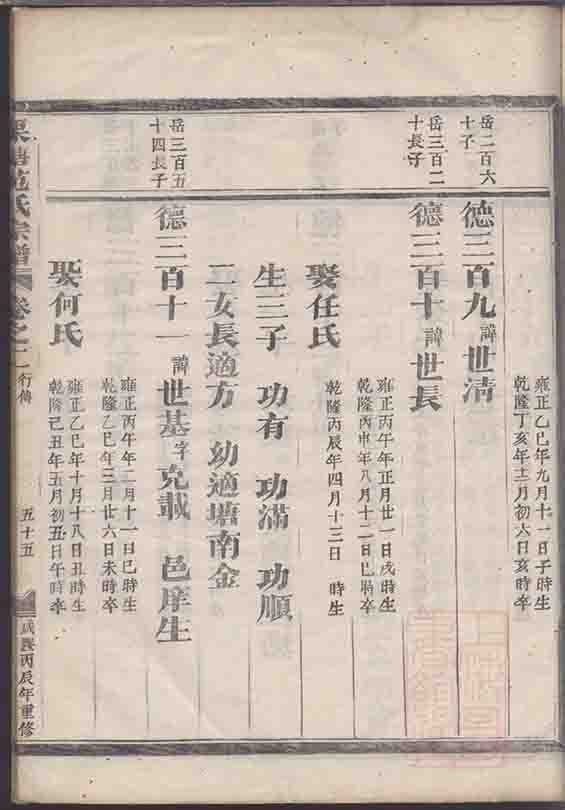 岳二百六
十子
德三百九 諱世清
雍正乙巳年九月十一日子時生
乾隆丁亥年十二月初六日亥時卒
岳三百二
十長子
德三百十 諱世長
雍正丙午年正月廿一日戌時生
乾隆丙申年八月十二日巳時卒
娶任氏
乾隆丙辰年四月十三日 時生
生三子 功有 功滿 功順
二女長適方 幼適塘南金
岳三百五
十四長子
德三百十一 諱世基字克載 邑庠生
雍正丙午年二月十一日巳時生
乾隆乙巳年三月廿六日未時卒
娶何氏
雍正乙巳年十月十八日丑時生
乾隆己丑年五月初五日午時卒
范氏宗譜 卷之二 行傳 五十五 咸豐丙辰年重修